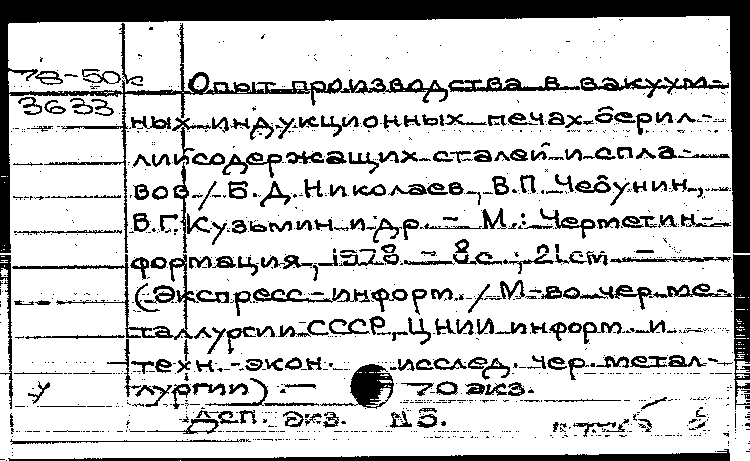 78-50к
3633
Опыт производства в вакуум-
ных индукционных печах берил-
лийсодержащих сталей и спла-
вов / Б.Д. Николаев, В.П. Чебунин,
В.Г. Кузьмин и др. - М.: Черметин-
формация, 1978. - 8с.; 21cm. -
(Экспресс-информ. / М-во чер. ме-
таллургии СССР, ЦНИИ информ. и
техн.-экон. исслед. чер. метал-
лургии). - 70 экз.
Дсп. экз. №5.